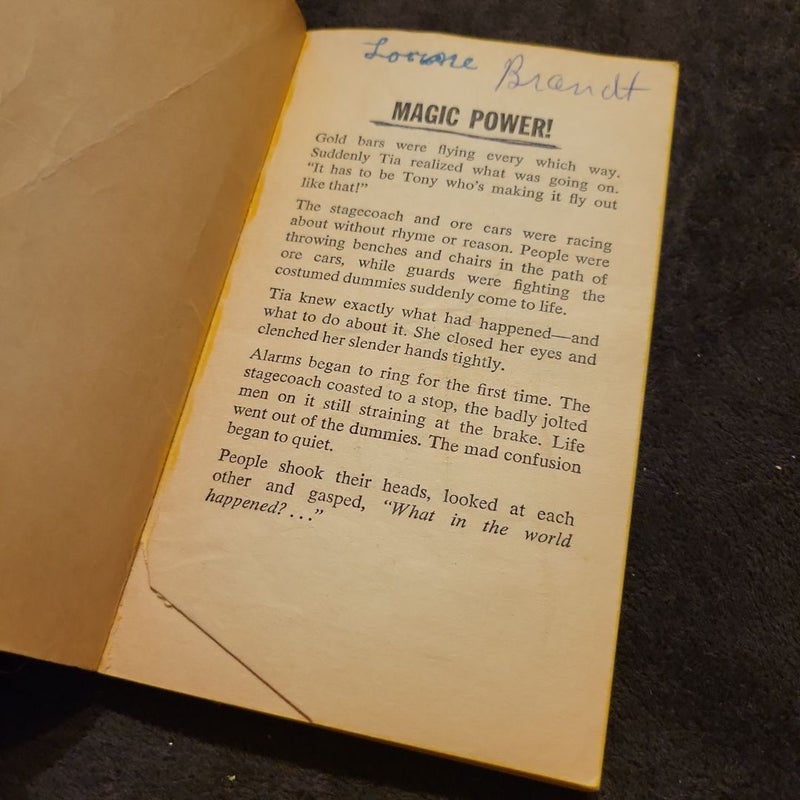 Lorraine Brandt
MAGIC POWER!
Gold bars were flying every which way.
Suddenly Tia realized what was going on.
"It has to be Tony who's making it fly out
like that!"
The stagecoach and ore cars were racing
about without rhyme or reason. People were
throwing benches and chairs in the path of
ore cars, while guards were fighting the
costumed dummies suddenly come to life.
Tia knew exactly what had happened—and
what to do about it. She closed her eyes and
clenched her slender hands tightly.
Alarms began to ring for the first time. The
stagecoach coasted to a stop, the badly jolted
men on it still straining at the brake. Life
went out of the dummies. The mad confusion
began to quiet.
People shook their heads, looked at each
other and gasped, "What in the world
happened? . . ."